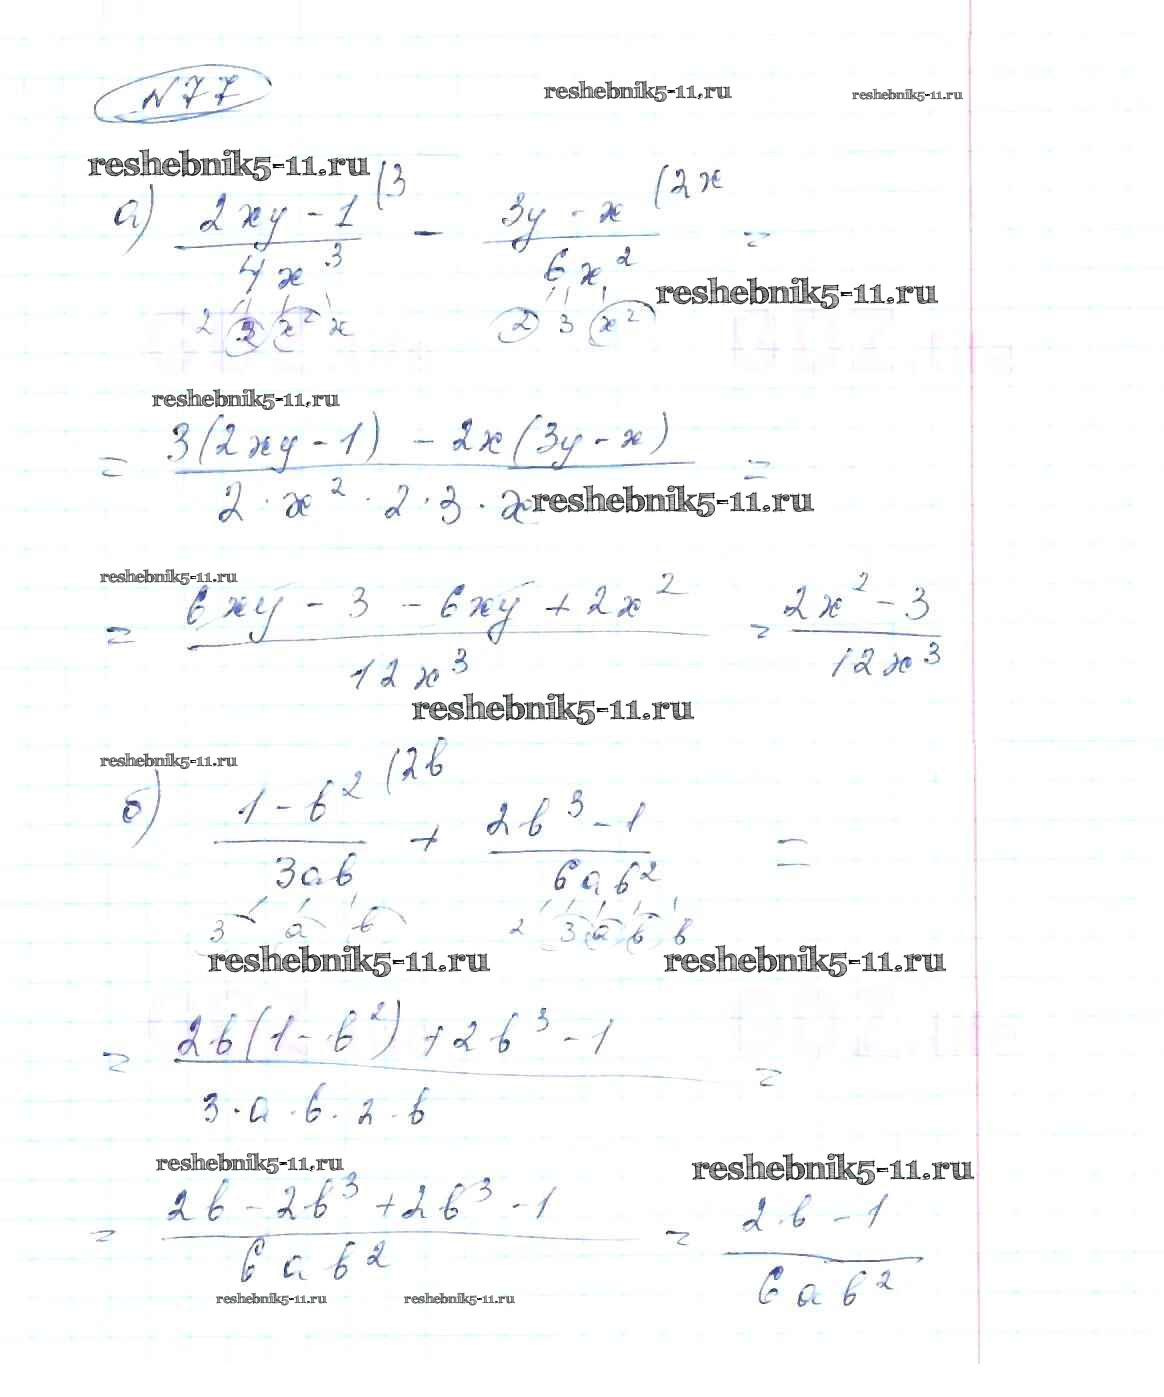 N 77
reshebnik5-11.ru reshebnik5-11.ru
reshebnik5-11.ru
а) (2xy - 1)/(4x³) (3 - (3y - x)/(6x²) (2x =
reshebnik5-11.ru
2 2 x² x 2 3 x²
reshebnik5-11.ru
= (3(2xy - 1) - 2x(3y - x))/(2 · x² · 2 · 3 · x) =
reshebnik5-11.ru
reshebnik5-11.ru
= (6xy - 3 - 6xy + 2x²)/(12x³) = (2x² - 3)/(12x³)
reshebnik5-11.ru
reshebnik5-11.ru
б) (1 - b²)/(3ab) (2b + (2b³ - 1)/(6ab²) =
3 a b 2 3 a b b
reshebnik5-11.ru reshebnik5-11.ru
= (2b(1 - b²) + 2b³ - 1)/(3 · a · b · 2 · b) =
reshebnik5-11.ru reshebnik5-11.ru
= (2b - 2b³ + 2b³ - 1)/(6ab²) = (2b - 1)/(6ab²)
reshebnik5-11.ru reshebnik5-11.ru